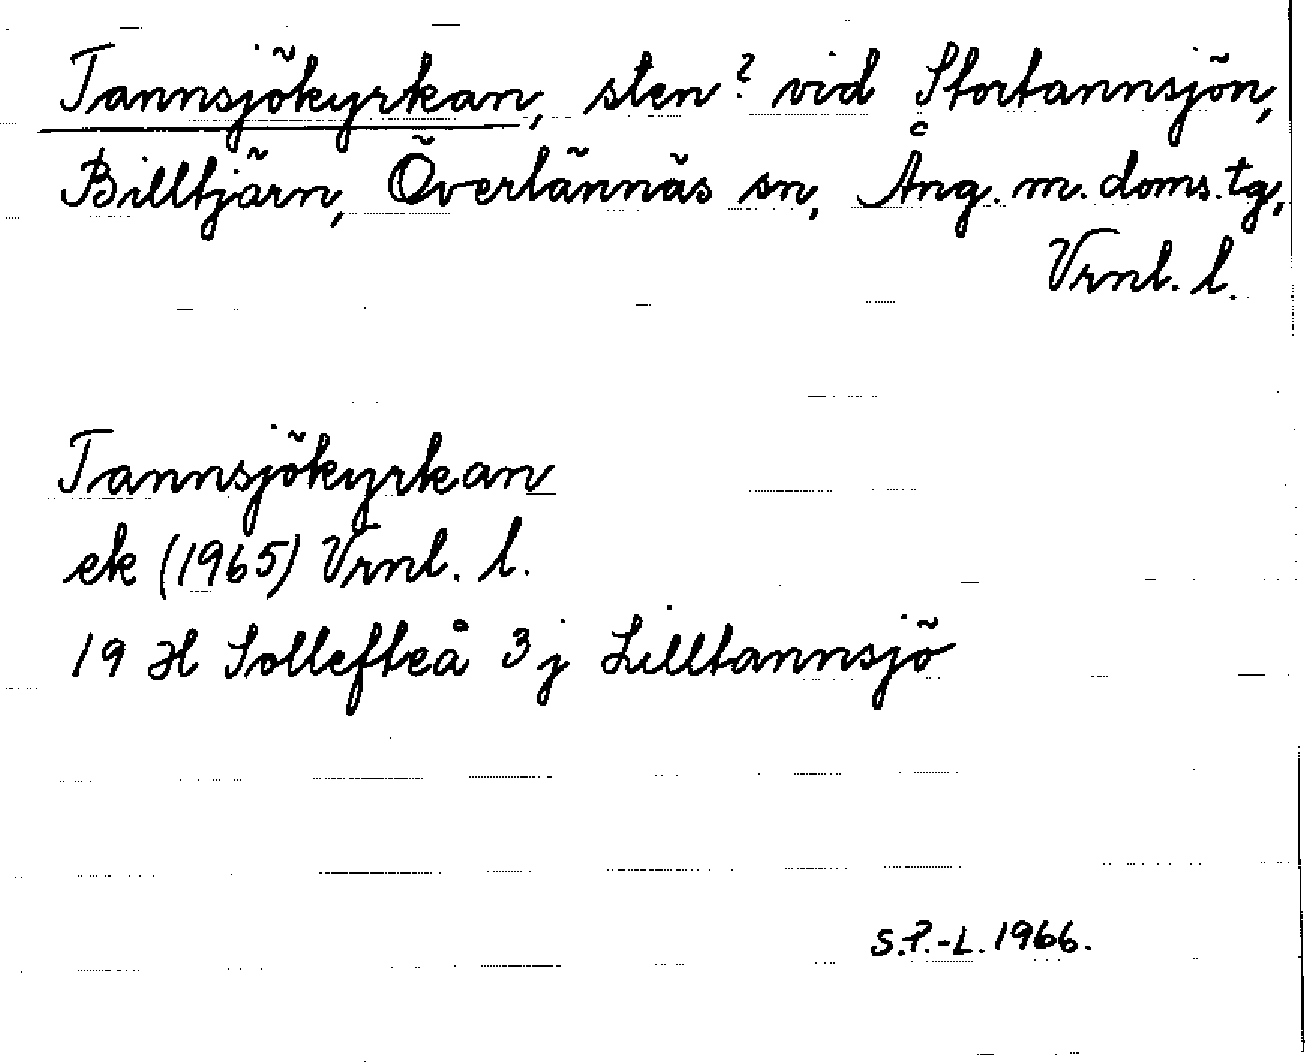 Tannsjökyrkan, sten? vid Stortannsjön,
Billtjärn, Överlännäs sn, Ång. m. doms.tg,
Vrnl. l.
Tannsjökyrkan
ek (1965) Vrnl. l.
19 H Sollefteå 3 j Lilltannsjö
S.P.-L. 1966.